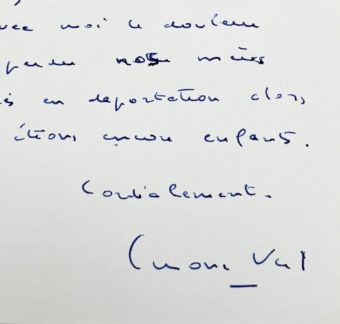 avec moi la douleur
perdu nos mères
en déportation alors
étions encore enfants.
Cordialement.
Simone Veil